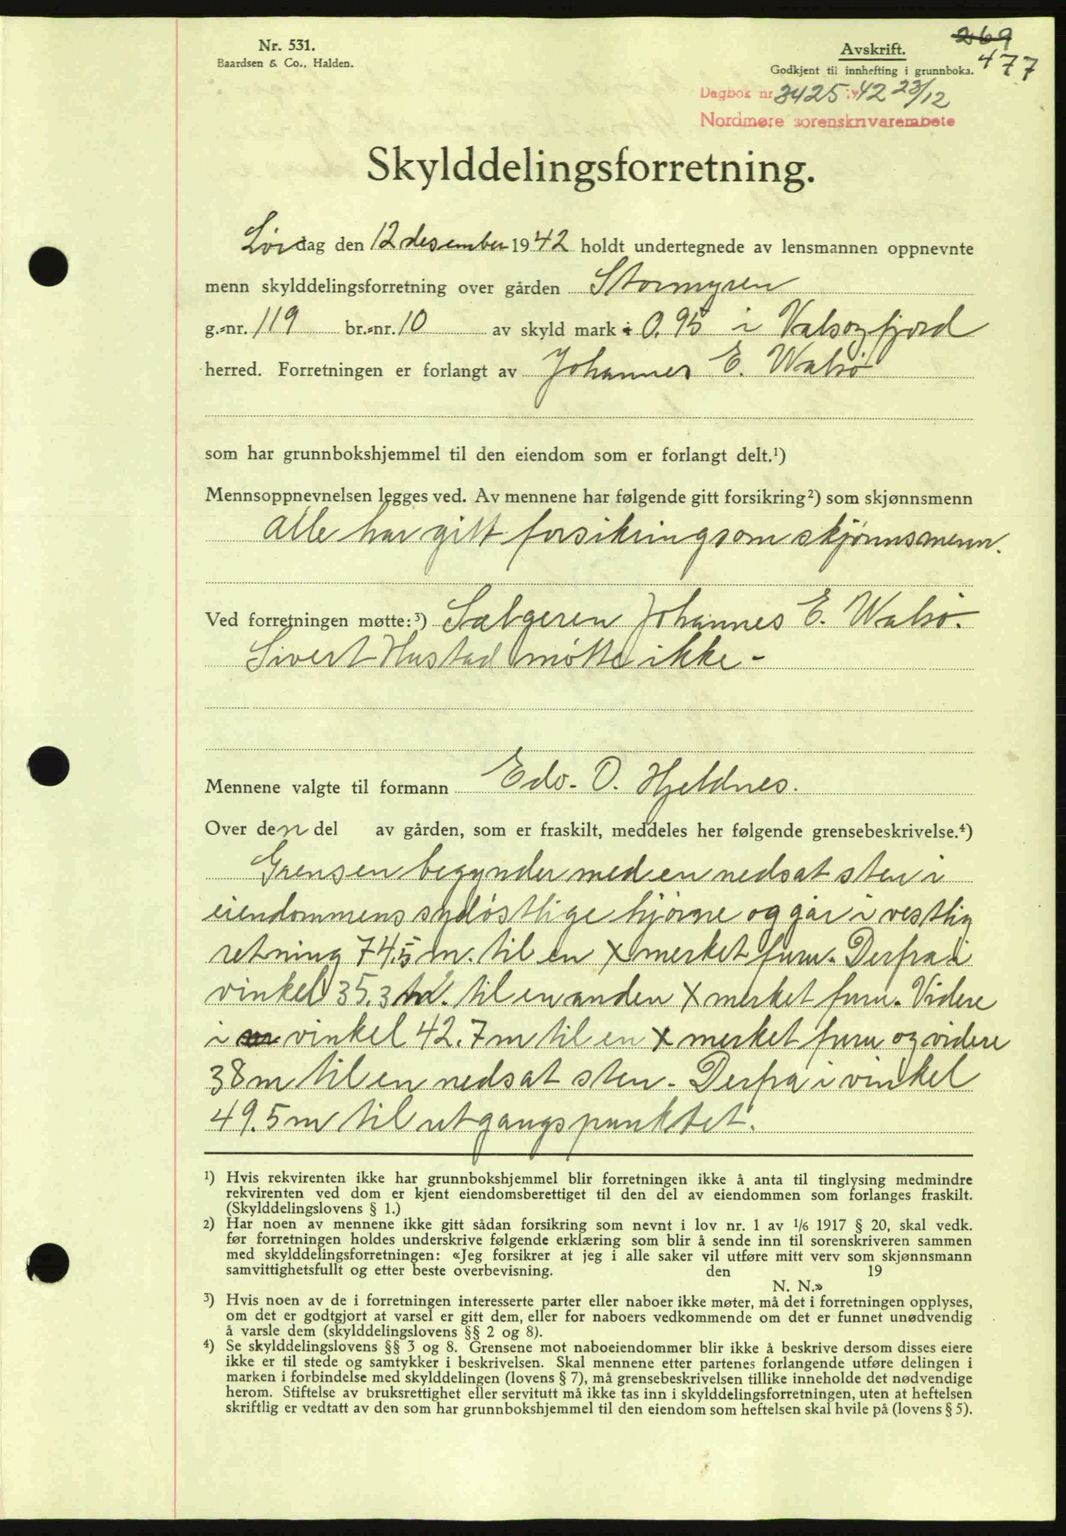 Nr. 531.
Baardsen & Co., Halden.
Avskrift.
Godkjent til innhefting i grunnboka.
269
477
Dagbok nr 3425 1942 23/12
Nordmøre sorenskriverembete
Skylddelingsforretning.
Lørdag den 12 desember 1942 holdt undertegnede av lensmannen oppnevnte
menn skylddelingsforretning over gården Stormyren
g.-nr. 119 br.-nr. 10 av skyld mark 0.95 i Valsøyfjord
herred. Forretningen er forlangt av Johannes E. Walsø
som har grunnbokshjemmel til den eiendom som er forlangt delt.¹)
Mennsoppnevnelsen legges ved. Av mennene har følgende gitt forsikring²) som skjønnsmenn
Alle har gitt forsikring som skjønnsmenn.
Ved forretningen møtte:³) Sælgeren Johannes E. Walsø.
Sivert Hustad møtte ikke -
Mennene valgte til formann Edv. O. Hjeldnes.
Over den del av gården, som er fraskilt, meddeles her følgende grensebeskrivelse.⁴)
Grensen begynder med en nedsat sten i
eiendommens sydøstlige hjørne og går i vestlig
retning 74.5 m. til en x merket furu. Derfra i
vinkel 35.3 m. til en anden x merket furu. Videre
i vinkel 42.7 m til en x merket furu og videre
38 m til en nedsat sten. Derfra i vinkel
49.5 m til utgangspunktet.
¹) Hvis rekvirenten ikke har grunnbokshjemmel blir forretningen ikke å anta til tinglysing medmindre
rekvirenten ved dom er kjent eiendomsberettiget til den del av eiendommen som forlanges fraskilt.
(Skylddelingslovens § 1.)
²) Har noen av mennene ikke gitt sådan forsikring som nevnt i lov nr. 1 av 1/6 1917 § 20, skal vedk.
før forretningen holdes underskrive følgende erklæring som blir å sende inn til sorenskriveren sammen
med skylddelingsforretningen: «Jeg forsikrer at jeg i alle saker vil utføre mitt verv som skjønnsmann
samvittighetsfullt og etter beste overbevisning. den 19
N. N.»
³) Hvis noen av de i forretningen interesserte parter eller naboer ikke møter, må det i forretningen opplyses,
om det er godtgjort at varsel er gitt dem, eller for naboers vedkommende om det er funnet unødvendig
å varsle dem (skylddelingslovens §§ 2 og 8).
⁴) Se skylddelingslovens §§ 3 og 8. Grensene mot naboeiendommer blir ikke å beskrive dersom disses eiere
ikke er til stede og samtykker i beskrivelsen. Skal mennene etter partenes forlangende utføre delingen i
marken i forbindelse med skylddelingen (lovens § 7), må grensebeskrivelsen tillike inneholde det nødvendige
herom. Stiftelse av bruksrettighet eller servitutt må ikke tas inn i skylddelingsforretningen, uten at heftelsen
skriftlig er vedtatt av den som har grunnbokshjemmel til den eiendom som heftelsen skal hvile på (lovens § 5).